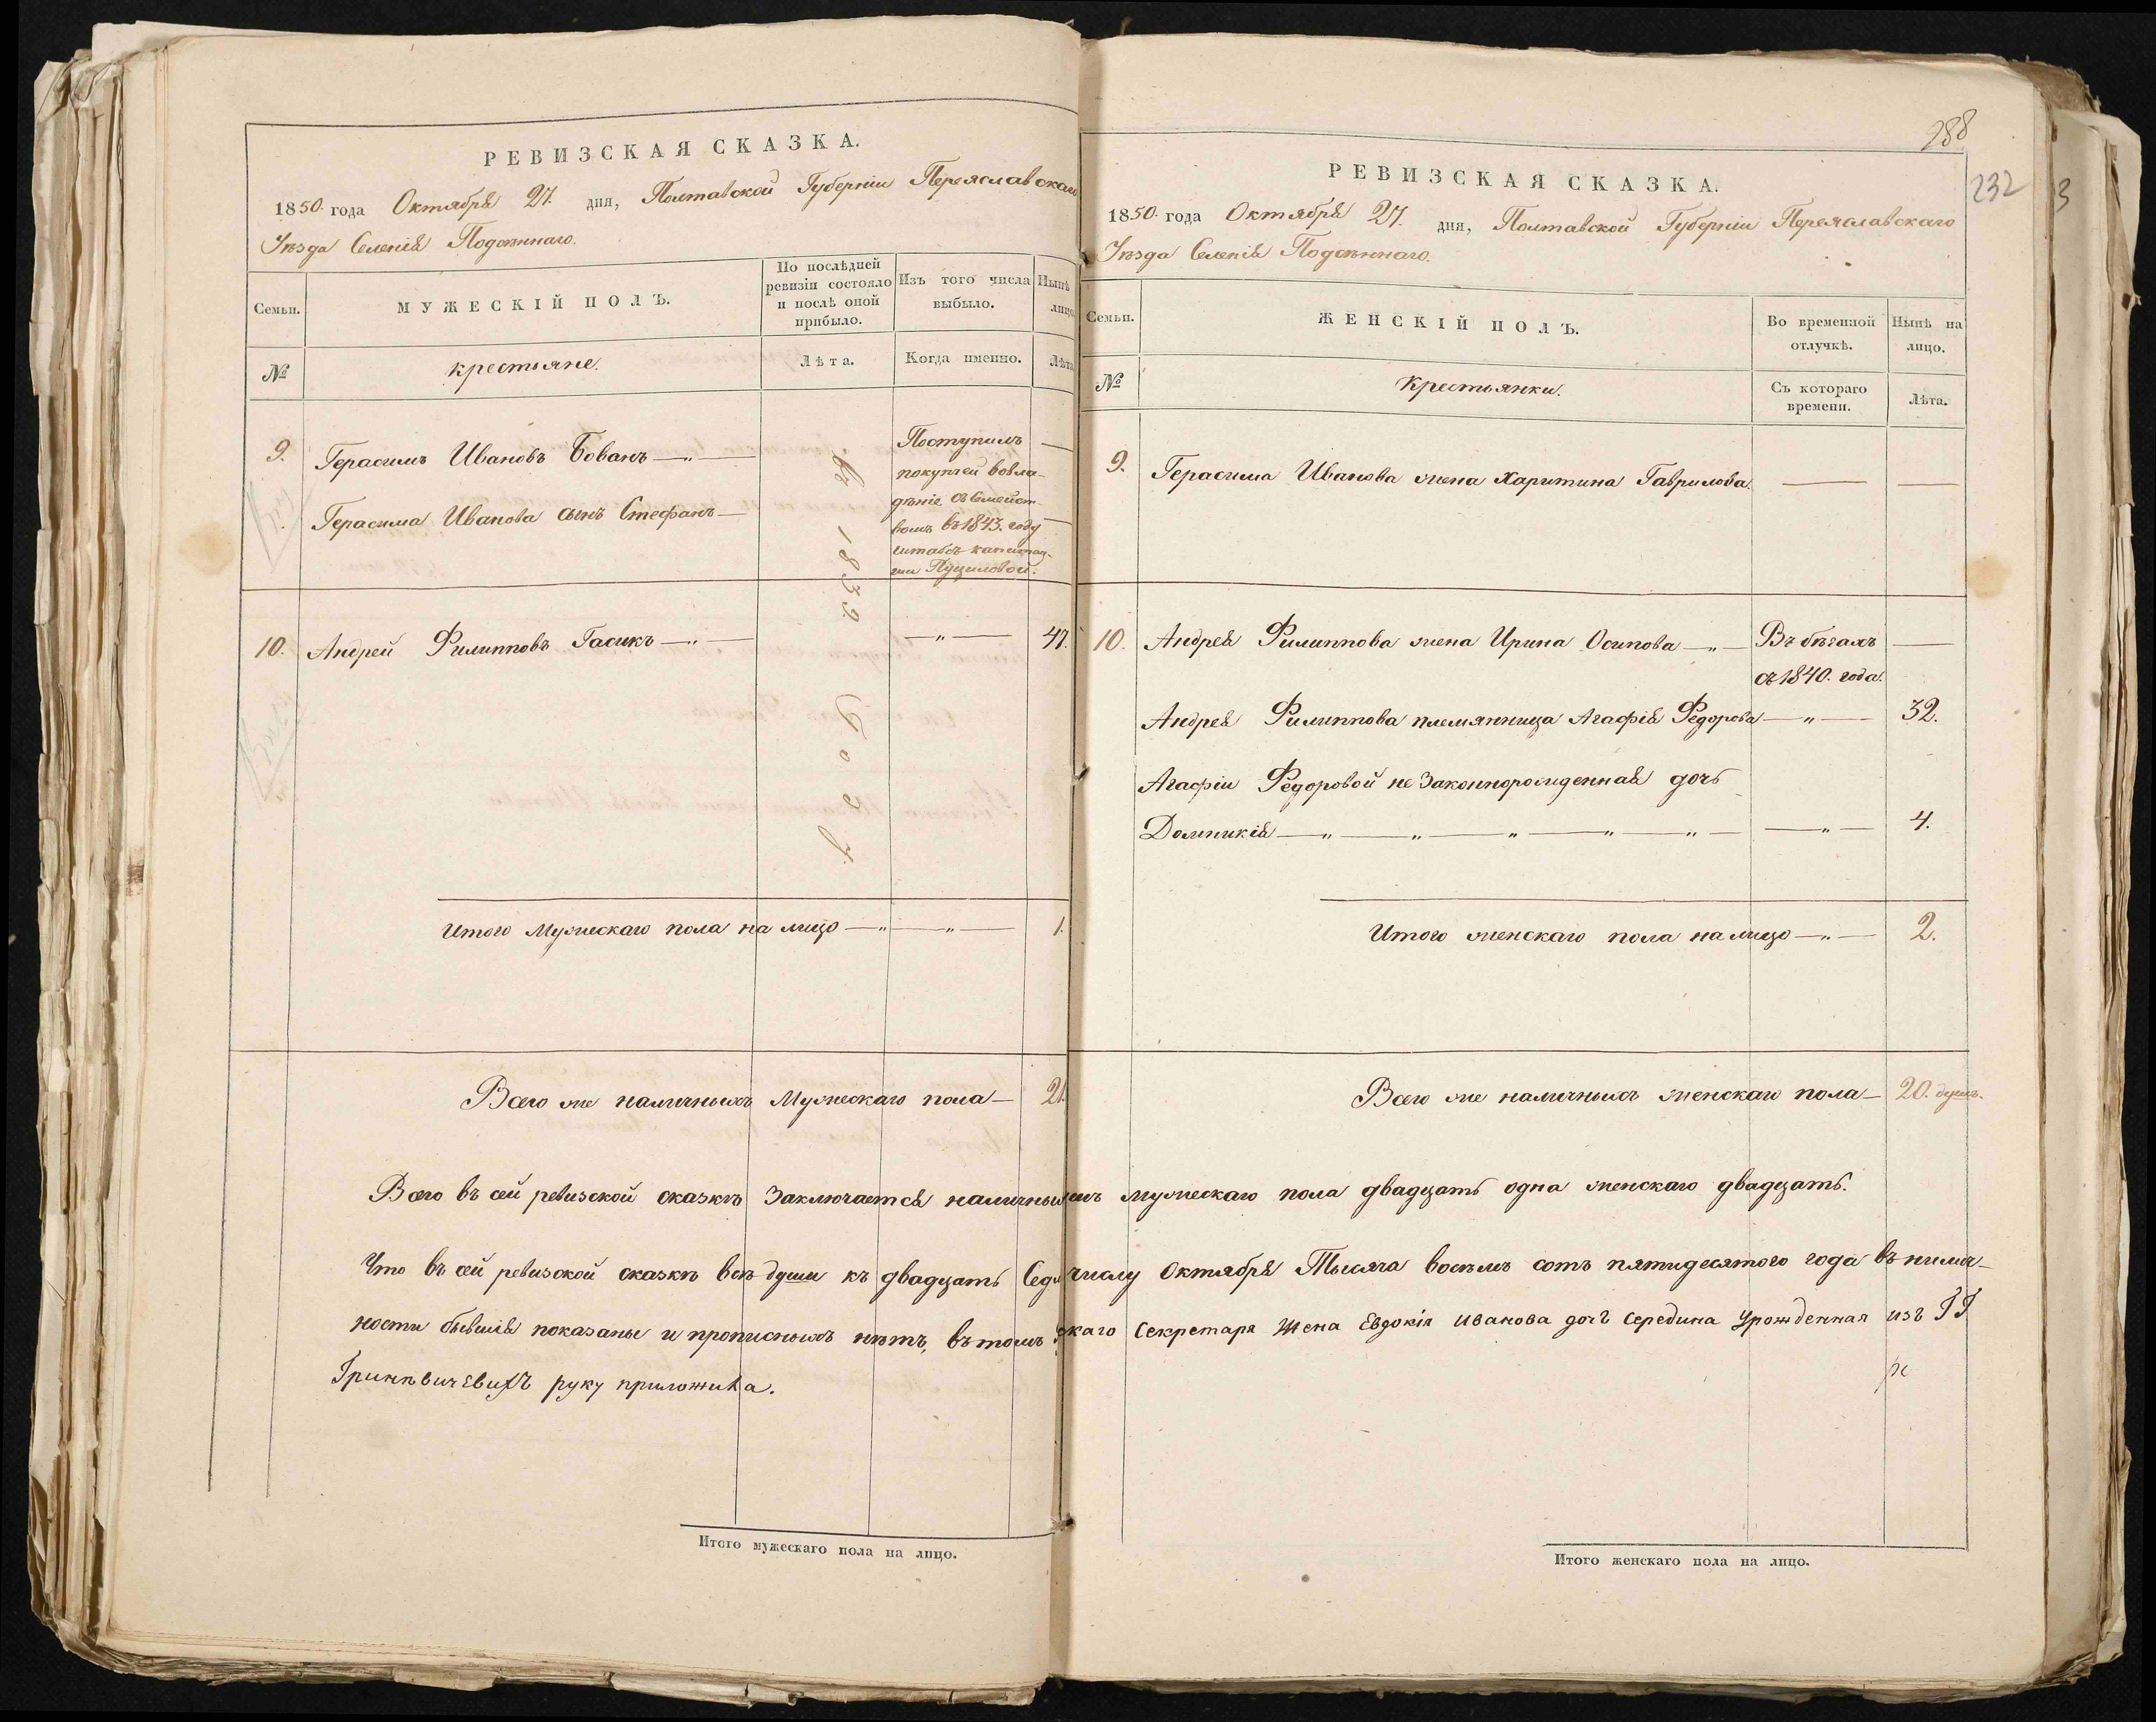 РЕВИЗСКАЯ СКАЗКА.
1850. года Октября 27. дня, Полтавской Губерніи Переяславскаго
Уѣзда Селенія
Семьи.
МУЖЕСКІЙ ПОЛЪ.
По послѣдней
ревизіи состояло
и послѣ оной
прибыло.
Изъ того числа
выбыло.
Нынѣ
лицо
№
крестьяне.
Лѣта.
Когда именно.
Лѣта
9.
Герасимъ Ивановъ Бованъ — „ —
Герасима Иванова сынъ Стефанъ —
Поступилъ
покупкей вовла-
дѣніе съ Семейст-
вомъ въ 1843. году
штабсъ капитан-
ши
1835 году
10.
Андрей Филипповъ Гасикъ — „ —
— „ —
47.
Итого Мужескаго пола на лицо — „ — „ —
1.
Всего же наличныхъ Мужескаго пола —
21.
288
232
3
РЕВИЗСКАЯ СКАЗКА.
1850. года Октября 27. дня, Полтавской Губерніи Переяславскаго
Уѣзда Селенія
Семьи.
ЖЕНСКІЙ ПОЛЪ.
Во временной
отлучкѣ.
Нынѣ на
лицо.
№
Крестьянки.
Съ котораго
времени.
Лѣта.
9.
Герасима Иванова жена Харитина Гаврилова.
10.
Андрея Филиппова жена Ирина Осипова — „ —
Въ бѣгахъ
съ 1840. года.
Андрея Филиппова племянница Агафія Федорова — „ — 32.
Агафіи Федоровой не Законнорожденная дочь
Домникія — „ — „ — „ — „ — „ — „ — 4.
Итого женскаго пола на лицо — „ — 2.
Всего же наличныхъ женскаго пола — 20. душъ.
Всего въ сей ревизской сказкѣ Заключается наличными мужескаго пола двадцать одна женскаго двадцать.
Что въ сей ревизской сказкѣ всѣ души къ двадцать Седьмому числу Октября Тысяча восемь сотъ пятидесятого года въ налич-
ности бывшія показаны и прописныхъ нѣтъ, въ томъ Секретаря жена Евдокія Иванова дочь Середина Урожденная изъ ГГ
ре
руку приложила.
Итого мужескаго пола на лицо.
Итого женскаго пола на лицо.